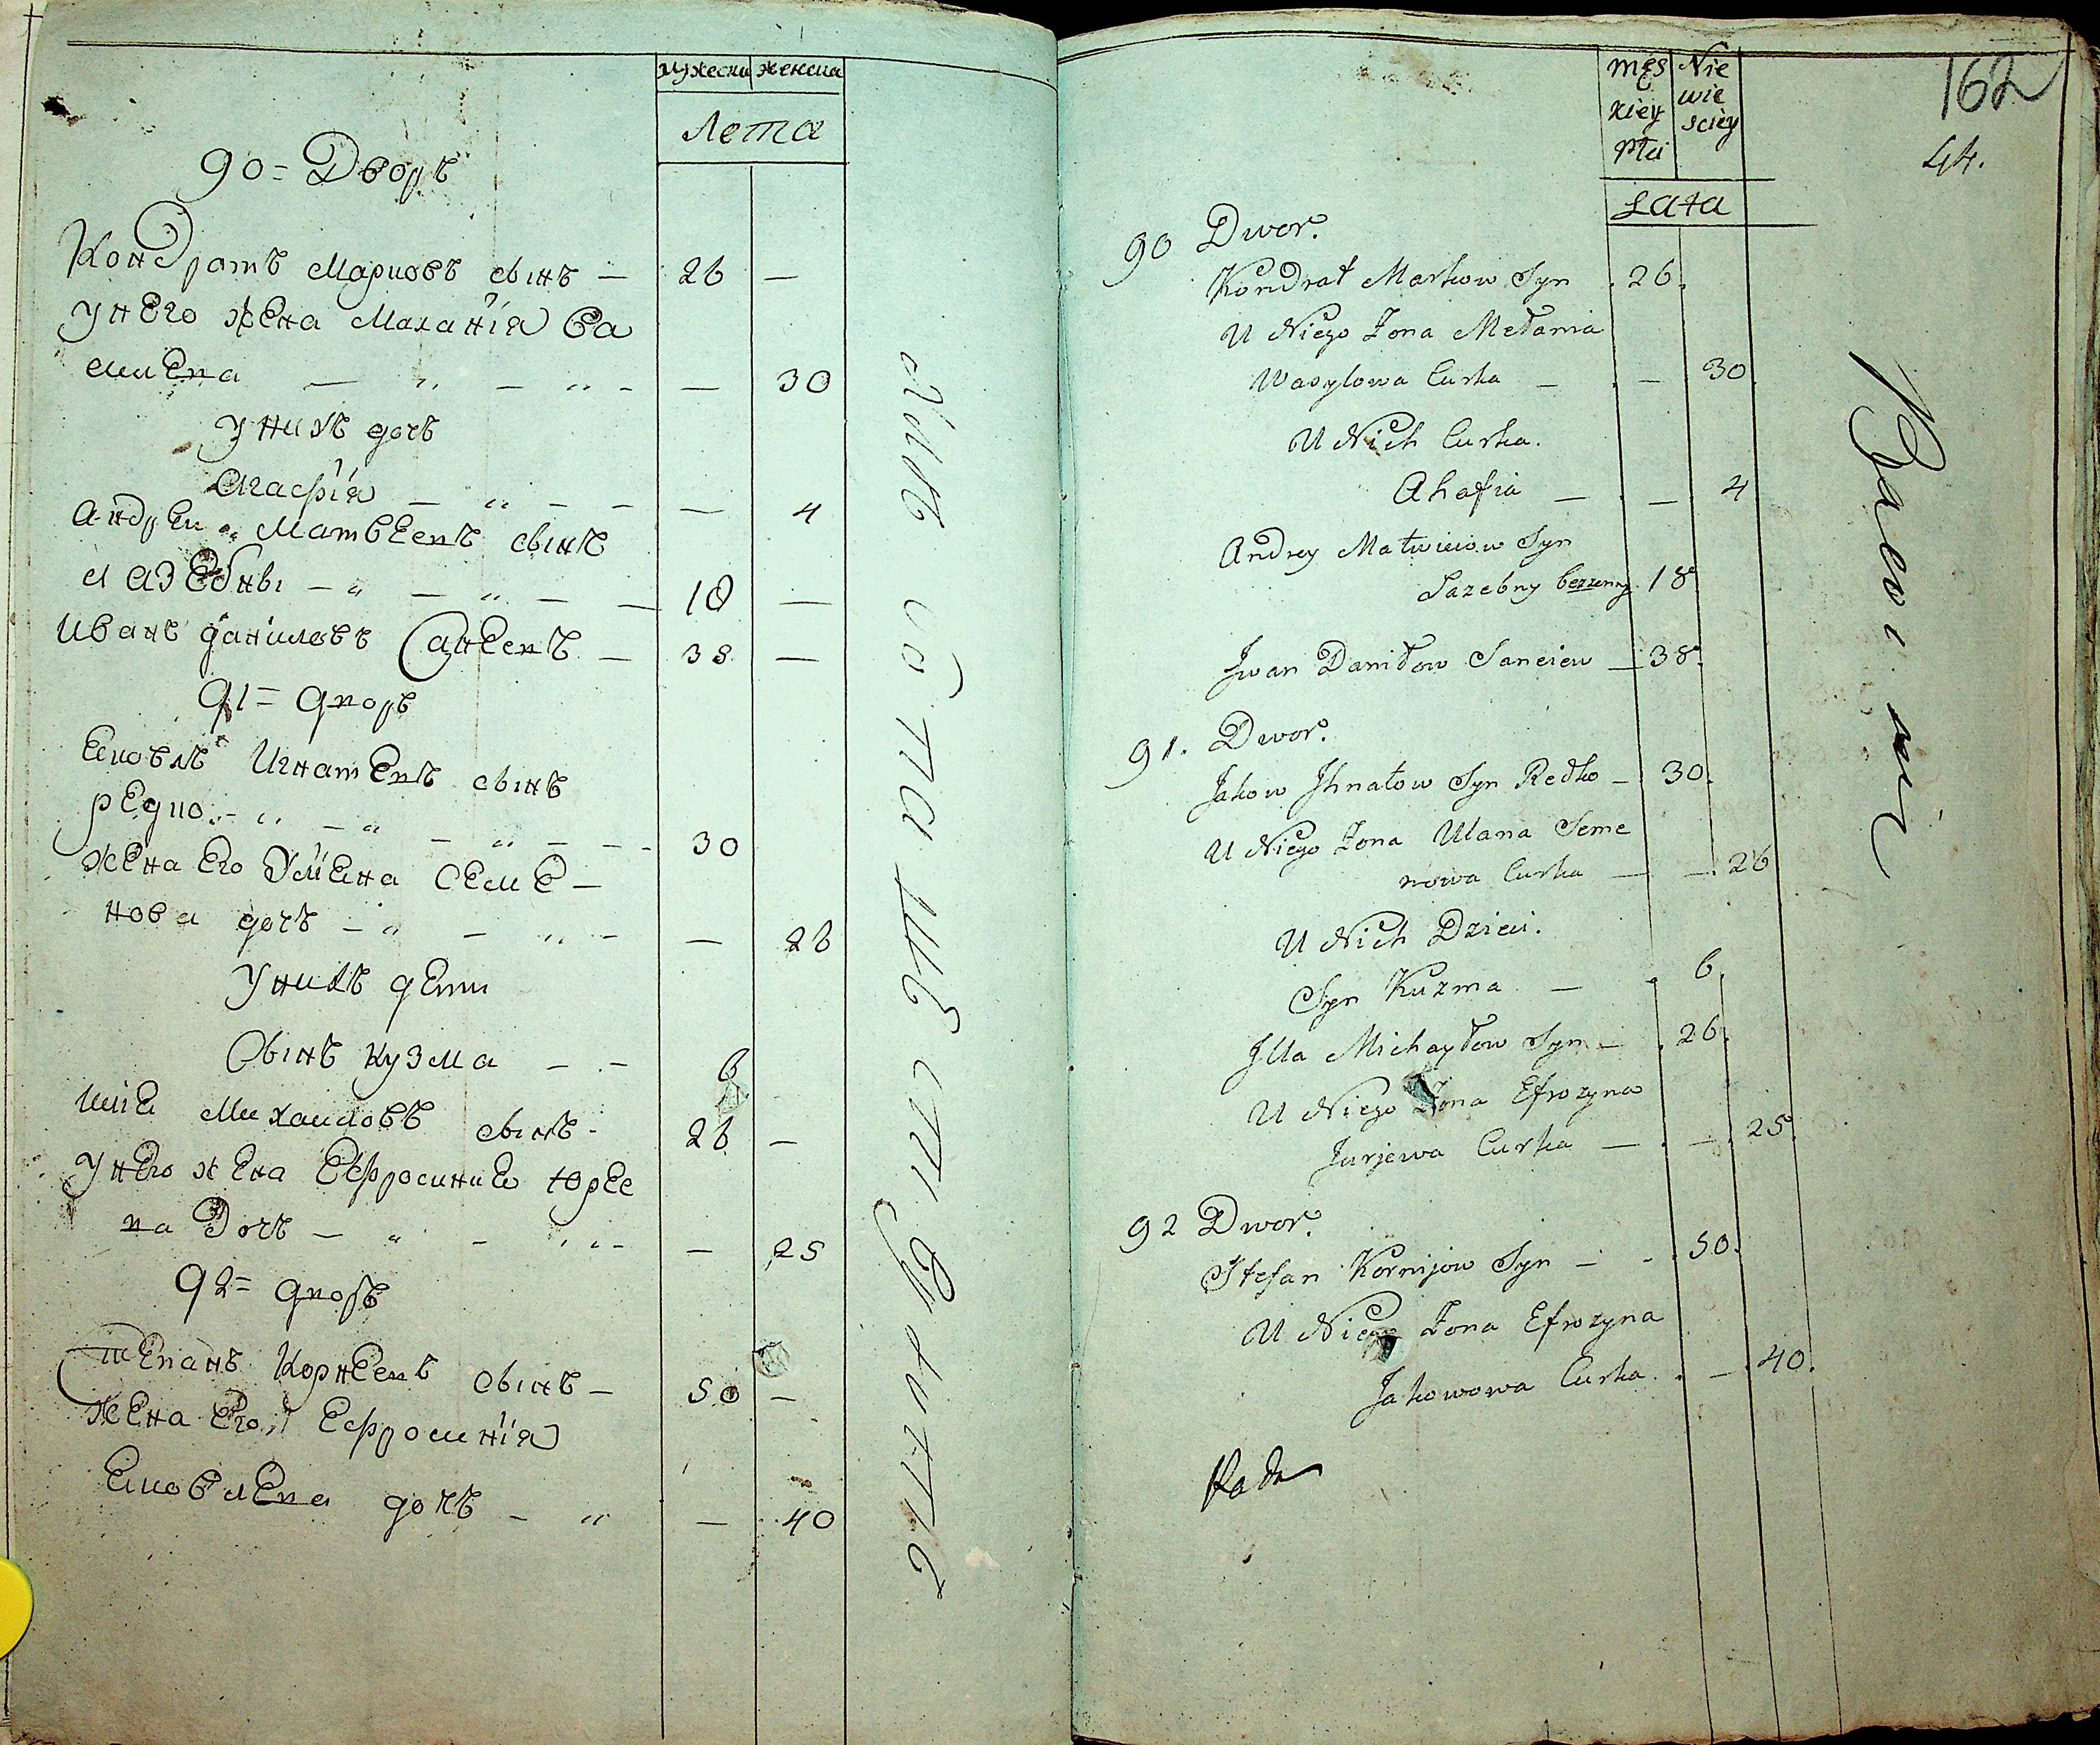 мужеска женска
Лета
90 = Дворъ
Кондратъ Марковъ сынъ — 26 —
У него жена Малания Ва
силева — 30
У нихъ дочь
Агафія — 4
Андрей Матвеевъ сынъ
лазебны — 18 —
Иванъ Даниловъ Санеевъ — 38 —
91 = дворъ
Яковлъ Игнатевъ сынъ
Редко — 30
Жена его Улияна Семе-
нова дочъ — 26
У нихъ дети
Сынъ Кузма — 6
Илия Михаиловъ сынъ - 26 —
У него жена Ефросиния Юрев
на дочъ — 25
92 = дворъ
Степанъ Корнеевъ сынъ — 50 —
Жена его Ефросинія
Яковлева дочъ — 40
męs
kiey
płci
Nie
wie
sciey
Lata
162
44.
90 Dwor.
Kondrat Markow Syn 26.
U Niego Zona Mełania
Wasylowa Curka — 30
U Nich Curka.
Ahafia — 4
Andrey Matwieiow Syn
Łazebny bezzenny 18
Jwan Daniłow Saneiew — 38.
91. Dwor.
Jakow Jhnatow Syn Redko — 30.
U Niego Zona Ulana Seme
nowa Curka — 26
U Nich Dzieci.
Syn Kuzma — 6.
Jlla Michayłow Syn — 26.
U Niego Zona Efrozyna
Jurjewa Curka — 25.
92 Dwor.
Stefan Kornijow Syn — 50.
U Niego Zona Efrozyna
Jakowowa Curka. — 40.